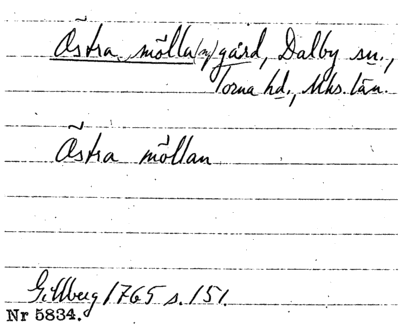 Östra mölla(n)gård, Dalby sn.,
Torna hd., Mhs. län.
Östra möllan
Gillberg 1765 s. 151.
Nr 5834.